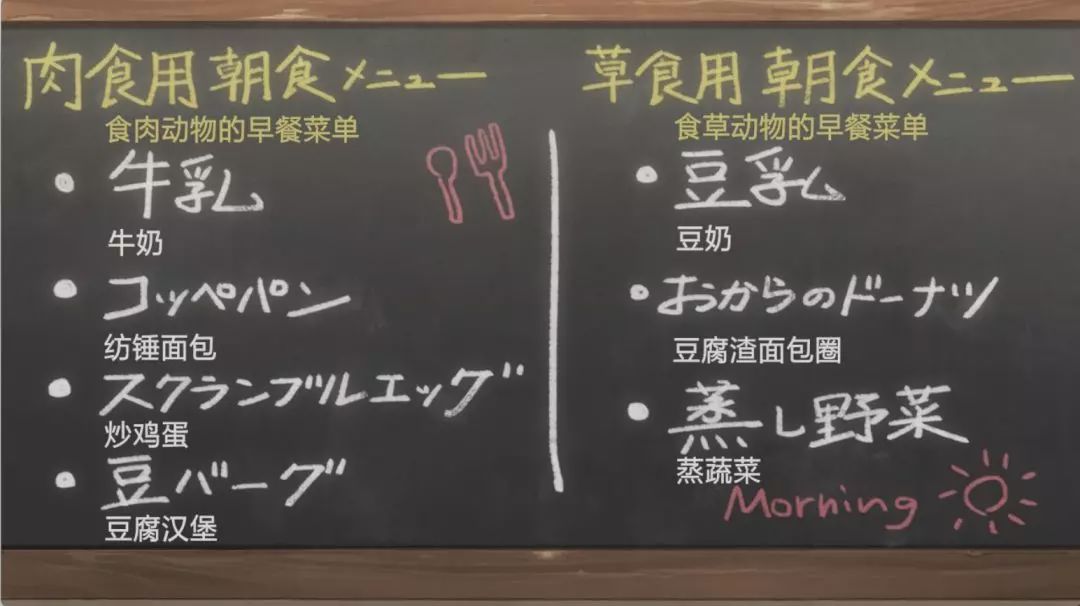 肉食用 朝食メニュー
食肉动物的早餐菜单
・牛乳
牛奶
・コッペパン
纺锤面包
・スクランブルエッグ
炒鸡蛋
・豆バーグ
豆腐汉堡
草食用 朝食メニュー
食草动物的早餐菜单
・豆乳
豆奶
・おからのドーナツ
豆腐渣面包圈
・蒸し野菜
蒸蔬菜
Morning